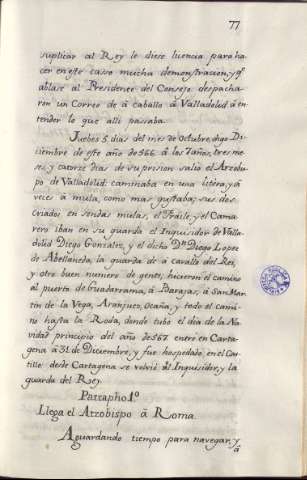 77
suplicar al Rey le diese licencia para ha-
cer en este casso mucha demonstracion, y q.e
ablase al Presidente del Consejo despacha-
ron un Correo de á caballo á Valladolid á en-
tender lo que alli passaba.
Juebes 5 dias del mes de Octubre, digo Di-
ciembre de este año de 566 á los 7 años, tres me-
ses, y catorce dias de su prision salió el Arzobis-
po de Valladolid: caminaba en una litera, y á
veces á mula, como mas gustaba; sus dos
criados en sendas mulas, el Fraile, y el Cama-
rero iban en su guarda el Inquisidor de Valla-
dolid Diego Gonzalez, y el dicho Dn Diego Lopez
de Abellaneda, la guarda de á cavallo del Rey,
y otro buen numero de gente; hicieron el camino
al puerto de Guadarrama, á Barajas, á San Mar-
tin de la Vega, Aranjuez, Ocaña, y todo el cami-
no hasta la Roda, donde tubo el dia de la Na-
vidad principio del año de 567 entre en Carta-
gena á 31 de Diciembre, y fue hospedado en el Cas-
tillo: desde Cartagena se volvió al Inquisidor, y la
guarda del Rey.
Parrapho 1º
Llega el Arzobispo á Roma.
Aguardando tiempo para navegar, y
á